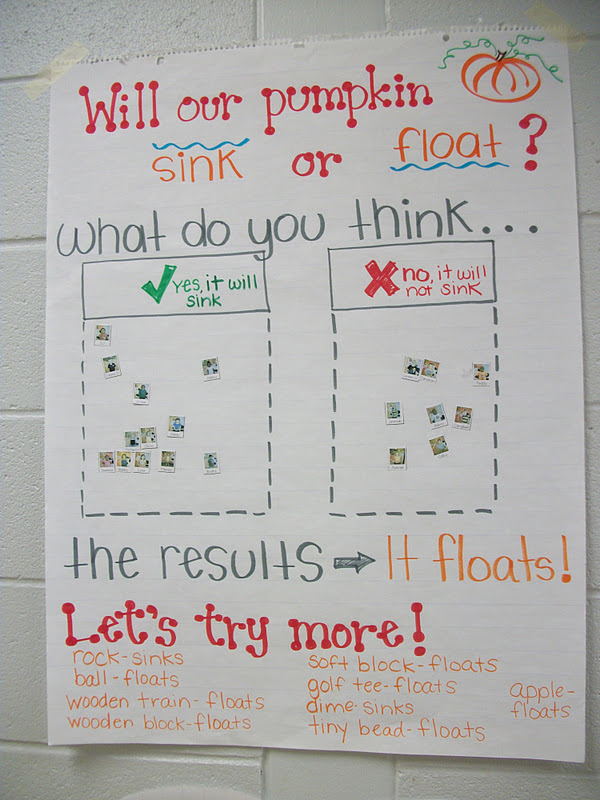 Will our pumpkin
sink or float?
What do you think...
yes, it will
sink
no, it will
not sink
the results → It floats!
Let's try more!
rock-sinks
ball-floats
wooden train-floats
wooden block-floats
soft block-floats
golf tee-floats
dime-sinks
tiny bead-floats
apple-
floats